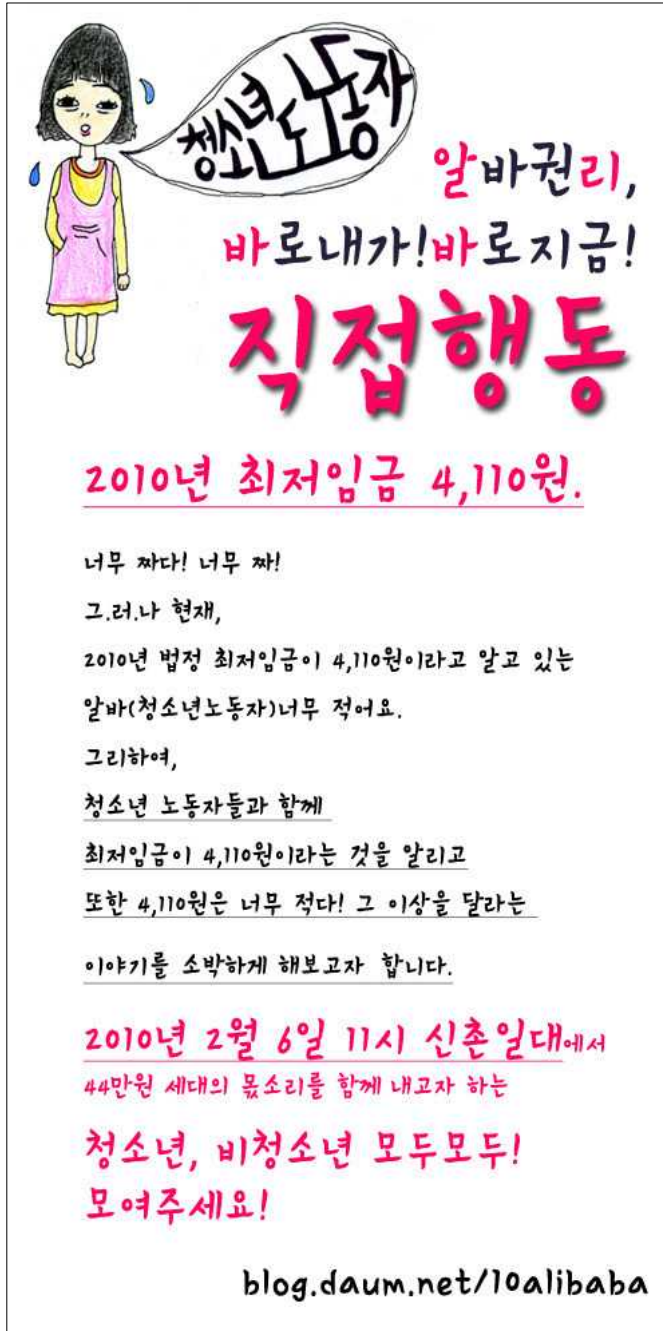 청소년노동자
알바권리,
바로내가!바로지금!
직접행동
2010년 최저임금 4,110원.
너무 짜다! 너무 짜!
그.러.나 현재,
2010년 법정 최저임금이 4,110원이라고 알고 있는
알바(청소년노동자)너무 적어요.
그리하여,
청소년 노동자들과 함께
최저임금이 4,110원이라는 것을 알리고
또한 4,110원은 너무 적다! 그 이상을 달라는
이야기를 소박하게 해보고자 합니다.
2010년 2월 6일 11시 신촌일대에서
44만원 세대의 몫소리를 함께 내고자 하는
청소년, 비청소년 모두모두!
모여주세요!
blog.daum.net/10alibaba